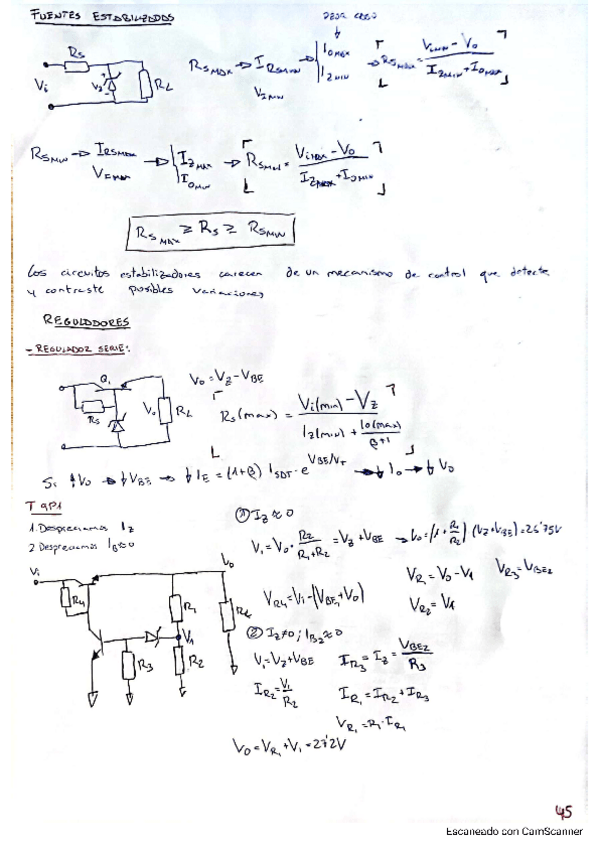 FUENTES ESTABILIZADAS
Rs
Vi
Vz
RL
RsMAX → IRsMIN → I0MAX
VzMIN
IzMIN
→ RsMAX = (ViMIN - Vo) / (IzMIN + I0MAX)
RsMIN → IRsMAX → IzMAX
I0MIN
→ RsMIN = (ViMAX - Vo) / (IzMAX + I0MIN)
RsMAX ≥ Rs ≥ RsMIN
Los circuitos estabilizadores carecen de un mecanismo de control que detecte
y contraste posibles variaciones
REGULADORES
- REGULADOR SERIE:
Q1
Rs
Vo
RL
Vo = Vz - VBE
Rs(max) = (Vi(min) - Vz) / (Iz(min) + Io(max)/(β+1))
Si ↑Vo → ↓VBE → ↓IE = (1+β) ISDT · e^(VBE/VT) → ↓Io → ↓Vo
T 9P1
1. Despreciamos Iz
2. Despreciamos IB≈0
① Iz ≈ 0
V1 = Vo · R2/(R1+R2) = Vz + VBE → Vo = (1 + R1/R2) (Vz + VBE) = 26'75V
VR1 = Vo - V1
VR3 = VBE2
VR4 = Vi - (VBE1 + Vo)
VR2 = V1
Vi
R4
Vo
R1
RL
V1
R3
R2
② Iz≠0 ; IB2≈0
V1 = Vz + VBE
IR3 = Iz = VBE2/R3
IR2 = V1/R2
IR1 = IR2 + IR3
VR1 = R1 · IR1
Vo = VR1 + V1 = 27'2V
45
Escaneado con CamScanner